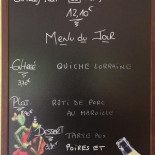 12.10€
Menu du Jour
Entrée QUICHE LORRAINE
Plat RÔTI DE PORC
AU MAROILLE
Dessert TARTE AUX
POIRES ET